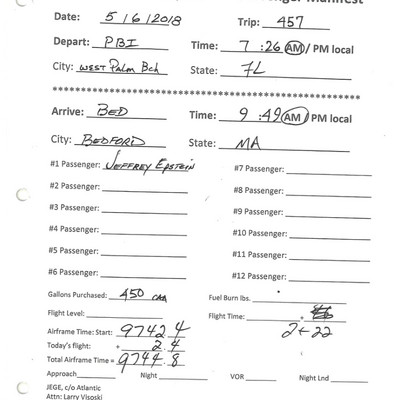 Manifest
Date: 5/6/2018 Trip: 457
Depart: PBI Time: 7:26 AM / PM local
City: West Palm Bch State: FL
********************************************
Arrive: BED Time: 9:49 AM / PM local
City: BEDFORD State: MA
#1 Passenger: JEFFREY EPSTEIN #7 Passenger:
#2 Passenger: #8 Passenger:
#3 Passenger: #9 Passenger:
#4 Passenger: #10 Passenger:
#5 Passenger: #11 Passenger:
#6 Passenger: #12 Passenger:
Gallons Purchased: 450 Fuel Burn lbs.
Flight Level: Flight Time: +
2+22
Airframe Time: Start: 9742.4
Today's flight: + 2.4
Total Airframe Time = 9744.8
Approach Night VOR Night Lnd
JEGE, c/o Atlantic
Attn: Larry Visoski